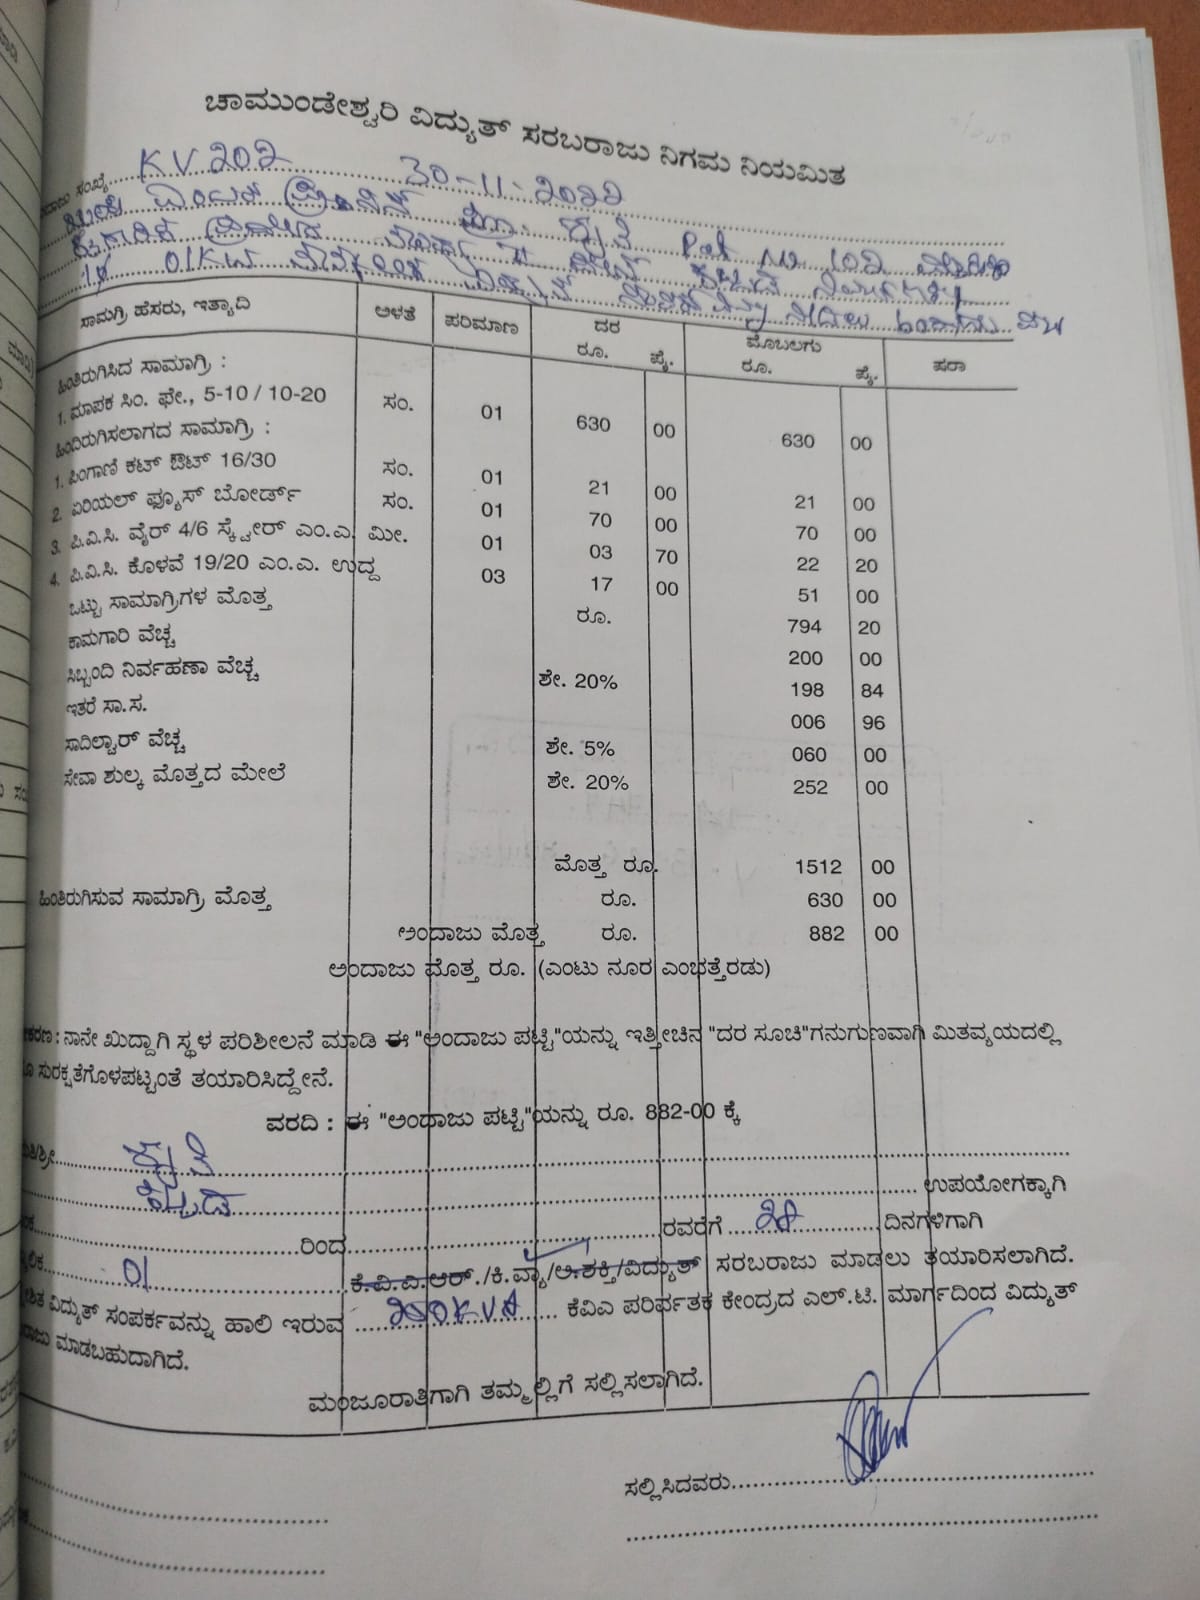 ಚಾಮುಂಡೇಶ್ವರಿ ವಿದ್ಯುತ್ ಸರಬರಾಜು ನಿಗಮ ನಿಯಮಿತ
ಸಂಖ್ಯೆ KV 202 30-11-2022
ಶ್ರುತಿ
01KW
ಸಾಮಗ್ರಿ ಹೆಸರು, ಇತ್ಯಾದಿ ಅಳತೆ ಪರಿಮಾಣ ದರ ಮೊಬಲಗು ಷರಾ
ರೂ. ಪೈ. ರೂ. ಪೈ.
ಹಿಂತಿರುಗಿಸಿದ ಸಾಮಾಗ್ರಿ :
1. ಮಾಪಕ ಸಿಂ. ಫೇ., 5-10 / 10-20 ಸಂ. 01 630 00 630 00
ಹಿಂದಿರುಗಿಸಲಾಗದ ಸಾಮಾಗ್ರಿ :
1. ಪಿಂಗಾಣಿ ಕಟ್ ಔಟ್ 16/30 ಸಂ. 01 21 00 21 00
2. ಏರಿಯಲ್ ಫ್ಯೂಸ್ ಬೋರ್ಡ್ ಸಂ. 01 70 00 70 00
3. ಪಿ.ವಿ.ಸಿ. ವೈರ್ 4/6 ಸ್ಕ್ವೇರ್ ಎಂ.ಎ. ಮೀ. 01 03 70 22 20
4. ಪಿ.ವಿ.ಸಿ. ಕೊಳವೆ 19/20 ಎಂ.ಎ. ಉದ್ದ 03 17 00 51 00
ಒಟ್ಟು ಸಾಮಾಗ್ರಿಗಳ ಮೊತ್ತ ರೂ. 794 20
ಕಾಮಗಾರಿ ವೆಚ್ಚ 200 00
ಸಿಬ್ಬಂದಿ ನಿರ್ವಹಣಾ ವೆಚ್ಚ ಶೇ. 20% 198 84
ಇತರೆ ಸಾ.ಸ. 006 96
ಸಾದಿಲ್ವಾರ್ ವೆಚ್ಚ ಶೇ. 5% 060 00
ಸೇವಾ ಶುಲ್ಕ ಮೊತ್ತದ ಮೇಲೆ ಶೇ. 20% 252 00
ಮೊತ್ತ ರೂ. 1512 00
ಹಿಂತಿರುಗಿಸುವ ಸಾಮಾಗ್ರಿ ಮೊತ್ತ ರೂ. 630 00
ಅಂದಾಜು ಮೊತ್ತ ರೂ. 882 00
ಅಂದಾಜು ಮೊತ್ತ ರೂ. (ಎಂಟು ನೂರ ಎಂಭತ್ತೆರಡು)
ನಾನೇ ಖುದ್ದಾಗಿ ಸ್ಥಳ ಪರಿಶೀಲನೆ ಮಾಡಿ ಈ "ಅಂದಾಜು ಪಟ್ಟಿ"ಯನ್ನು ಇತ್ತೀಚಿನ "ದರ ಸೂಚಿ"ಗನುಗುಣವಾಗಿ ಮಿತವ್ಯಯದಲ್ಲಿ
ಸುರಕ್ಷತೆಗೊಳಪಟ್ಟಂತೆ ತಯಾರಿಸಿದ್ದೇನೆ.
ವರದಿ : ಈ "ಅಂದಾಜು ಪಟ್ಟಿ"ಯನ್ನು ರೂ. 882-00 ಕ್ಕೆ
ಶ್ರುತಿ
ಉಪಯೋಗಕ್ಕಾಗಿ
ರಿಂದ ರವರೆಗೆ 28 ದಿನಗಳಿಗಾಗಿ
01 ಕೆ.ವಿ.ಎ.ಆರ್./ಕಿ.ವ್ಯಾ/ಅ.ಶಕ್ತಿ/ವಿದ್ಯುತ್ ಸರಬರಾಜು ಮಾಡಲು ತಯಾರಿಸಲಾಗಿದೆ.
ವಿದ್ಯುತ್ ಸಂಪರ್ಕವನ್ನು ಹಾಲಿ ಇರುವ 200KVA ಕೆವಿಎ ಪರಿರ್ವತಕ ಕೇಂದ್ರದ ಎಲ್.ಟಿ. ಮಾರ್ಗದಿಂದ ವಿದ್ಯುತ್
ಮಾಡಬಹುದಾಗಿದೆ.
ಮಂಜೂರಾತಿಗಾಗಿ ತಮ್ಮಲ್ಲಿಗೆ ಸಲ್ಲಿಸಲಾಗಿದೆ.
ಸಲ್ಲಿಸಿದವರು